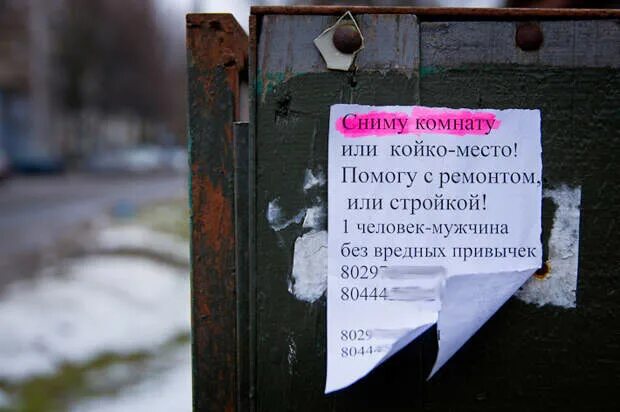 Сниму комнату
или койко-место!
Помогу с ремонтом,
или стройкой!
1 человек-мужчина
без вредных привычек
80297
80444
8029
8044